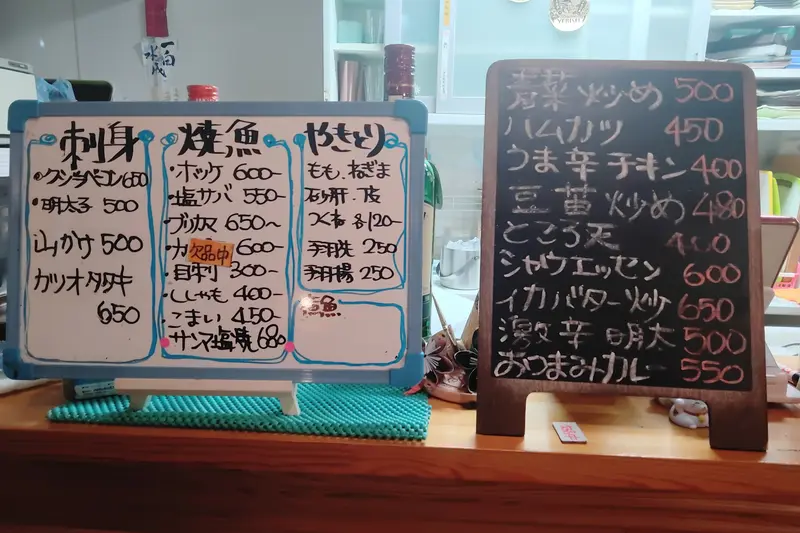 刺身
・クジラベーコン650
・明太子 500
山かけ 500
カツオタタキ
650
焼魚
・ホッケ 600-
・塩サバ 550-
・ブリカマ 650~
・カ 欠品中 600-
・目刺 300-
・ししゃも 400-
・こまい 450-
・サンマ塩焼 680
やきとり
もも、ねぎま
砂肝・皮
つくね 各120-
手羽先 250
手羽揚 250
青菜炒め 500
ハムカツ 450
うま辛チキン 400
豆苗炒め 480
ところ天 400
シャウエッセン 600
イカバター炒 650
激辛明太 500
おつまみカレー 550